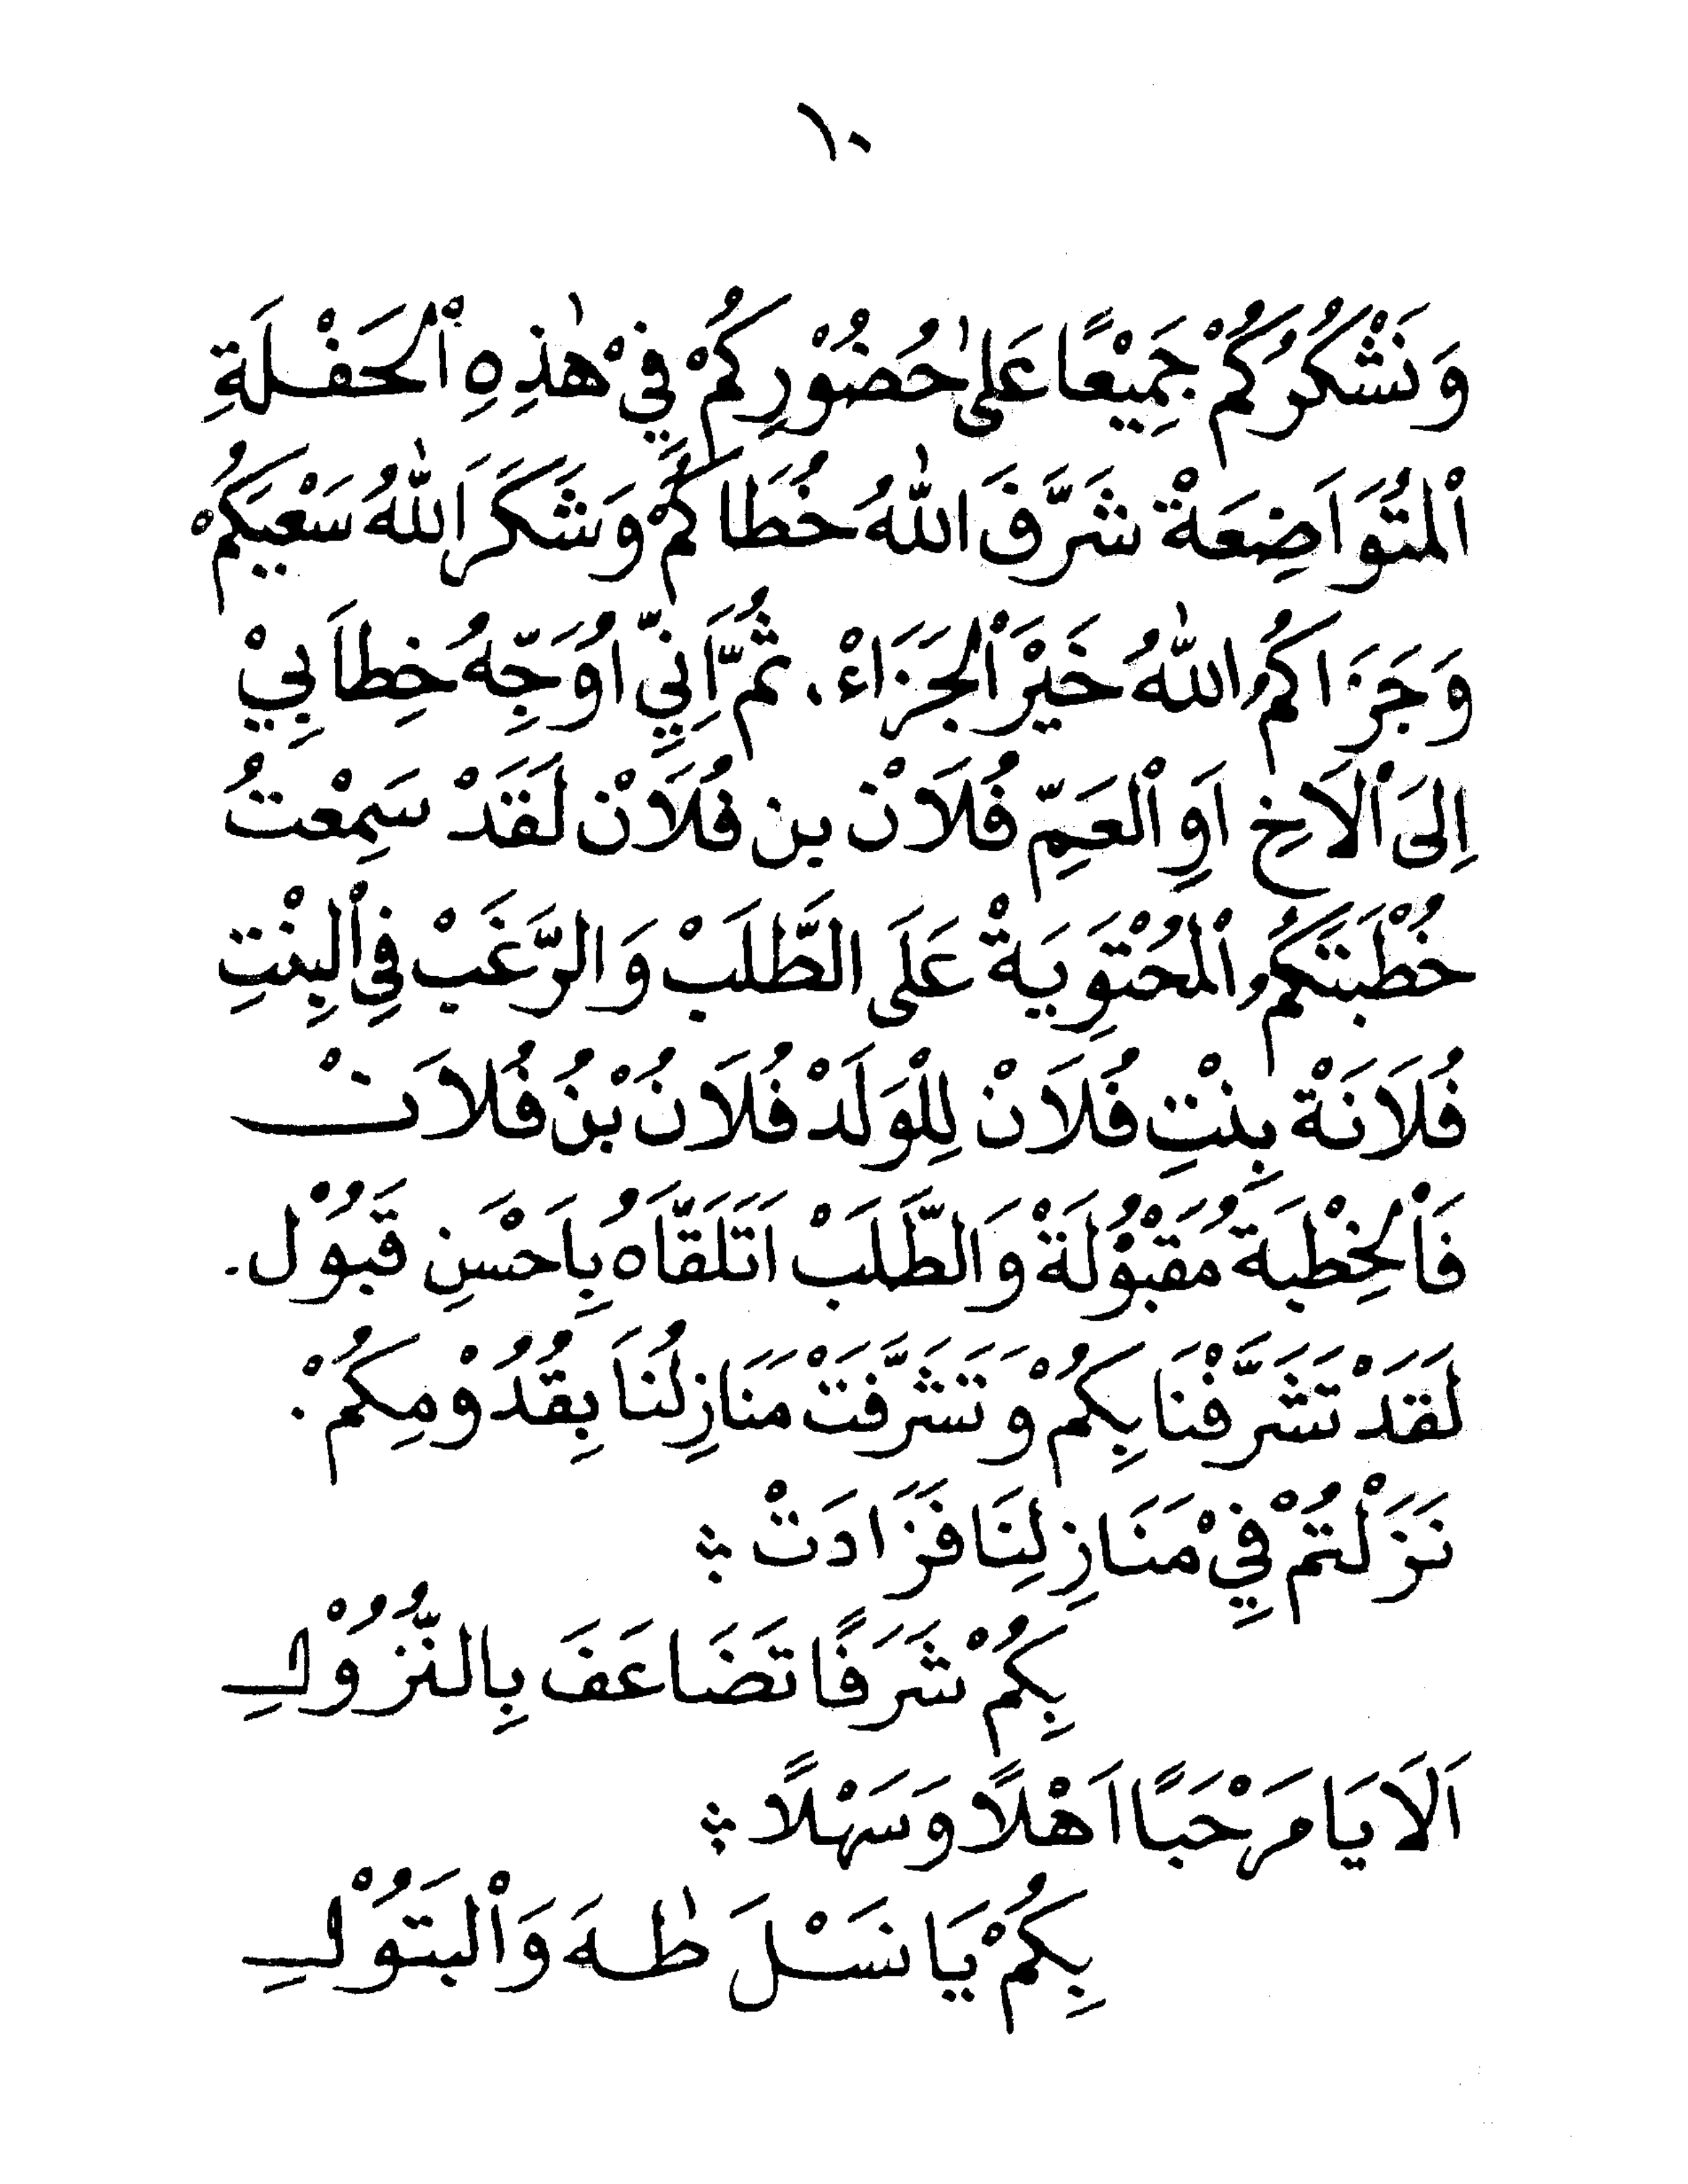 ١٠
وَنَشْكُرُكُمْ جَمِيْعًا عَلىٰ حُضُوْرِكُمْ فِيْ هٰذِهِ اْلحَفْلَةِ
اْلمُتَوَاضِعَةْ شَرَّفَ اللّٰهُ خُطَاكُمْ وَشَكَرَ اللّٰهُ سَعْيَكُمْ
وَجَزَاكُمُ اللّٰهُ خَيْرَ اْلجَزَاءْ، ثُمَّ اِنِّيْ اُوَجِّهُ خِطاَبِيْ
اِلىَ اْلاَخِ اَوِ اْلعَمِّ فُلاَنْ بن فُلاَنْ لَقَدْ سَمِعْتُ
خُطْبَتَكُمُ اْلمُحْتَوِيَةْ عَلَى الطَّلَبْ وَالرَّغَبْ فِي اْلبِنْتِ
فُلاَنَةْ بِنْتِ فُلاَنْ لِلْوَلَدْ فُلاَنُ بْنُ فُلاَنْ
فَاْلخِطْبَةُ مَقْبُوْلَةْ وَالطَّلَبْ اَتَلَقَّاهُ بِاَحْسَنِ قَبُوْل.
لَقَدْ تَشَرَّفْنَا بِكُمْ وَتَشَرَّفَتْ مَنَازِلُنَا بِقُدُوْمِكُمْ.
نَزَلْتُمْ فِيْ مَنَازِلِنَا فَزَادَتْ ؞
بِكُمْ شَرَفًا تَضَاعَفَ بِالنُّزُوْلِ
اَلاَ يَا مَرْحَبًا اَهْلاً وَسَهْلاً ؞
بِكُمْ يَا نَسْلَ طٰهَ وَاْلبَتُوْلِ